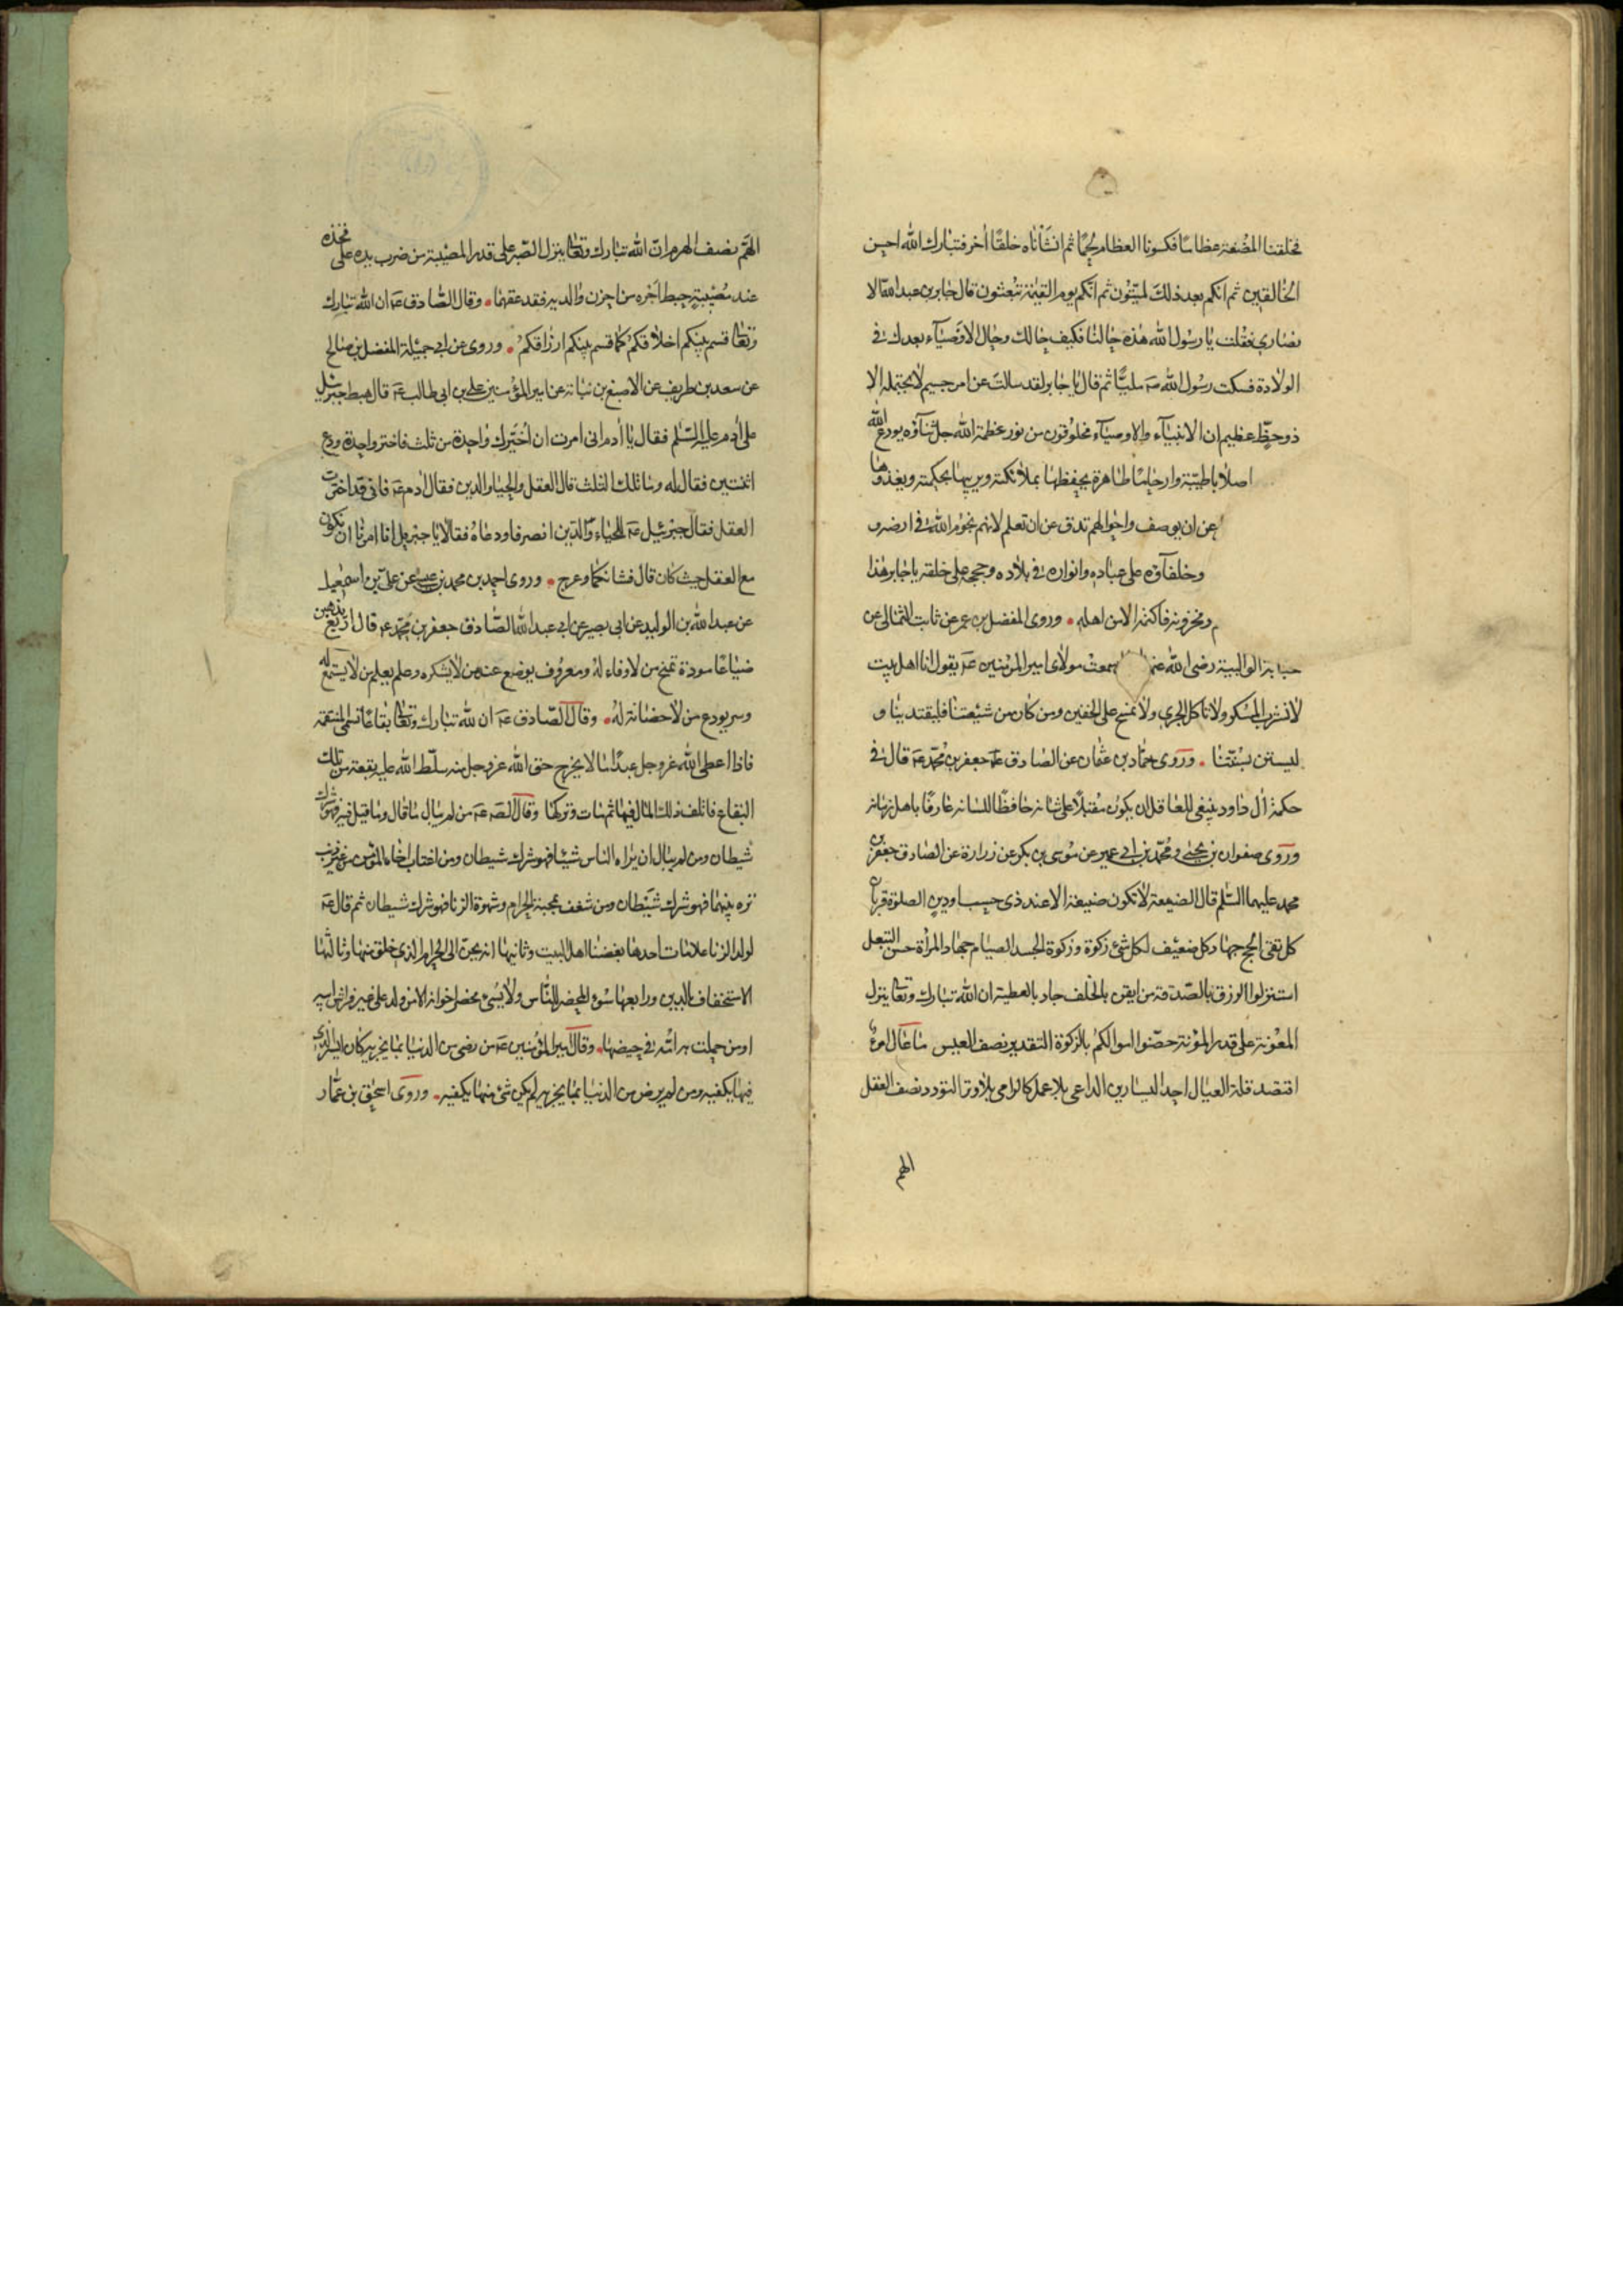 فخلقنا المضغة عظاما فكسونا العظام لحما ثم انشأناه خلقا آخر فتبارك الله احسن
الخالقين ثم انكم بعد ذلك لميتون ثم انكم يوم القيمة تبعثون قال جابر بن عبد الله الا
نصاري فقلت يا رسول الله هذه حالنا فكيف حالك وحال الاوصياء بعدك في
الولادة فسكت رسول الله صه مليا ثم قال يا جابر لقد سالت عن امر جسيم لا يحتمله الا
ذو حظ عظيم ان الانبياء والاوصياء مخلوقون من نور عظمة الله جل ثناؤه يودع الله
اصلابا طيبة وارحاما طاهرة يحفظها بملائكته ويربيها بحكمته ويغذوها
عن ان يوصف واحوالهم تدق عن ان تعلم لانهم نجوم الله في ارضه و
وخلفاؤه على عباده وانواره في بلاده وحججه على خلقه يا جابر هذا
م ومخزونه فاكتمه الا من اهله وروى المفضل بن عمر عن ثابت الثمالي عن
حبابة الوالبية رضى الله عنها سمعت مولاى امير المؤمنين عه يقول انا اهل بيت
لا نشرب المسكر ولا ناكل الجري ولا نمسح على الخفين ومن كان من شيعتنا فليقتد بنا و
ليستن بسنتنا وروى حماد بن عثمان عن الصادق عه جعفر بن محمد عه قال في
حكمة آل داود ينبغى للعاقل ان يكون مقبلا على شانه حافظا للسانه عارفا باهل زمانه
وروى صفوان بن يحيى ومحمد بن ابي عمير عن موسى بن بكر عن زرارة عن الصادق جعفر بن
محمد عليهما السلم قال الصنيعة لا تكون صنيعة الا عند ذى حسب او دين الصلوة قربان
كل تقى الحج جهاد كل ضعيف لكل شئ زكوة وزكوة الجسد الصيام جهاد المرأة حسن التبعل
استنزلوا الرزق بالصدقة من ايقن بالخلف جاد بالعطية ان الله تبارك وتعالى ينزل
المعونة على قدر المؤنة حصنوا اموالكم بالزكوة التقدير نصف العيش ما عال امرؤ
اقتصد قلة العيال احد اليسارين الداعى بلا عمل كالرامى بلا وتر التودد نصف العقل
الهم
الهم نصف الهرم ان الله تبارك وتعالى ينزل الصبر على قدر المصيبة من ضرب يده على فخذه
عند مصيبة حبط اجره من احزن والديه فقد عقهما وقال الصادق عه ان الله تبارك
وتعالى قسم بينكم اخلاقكم كما قسم بينكم ارزاقكم وروى عن ابي جميلة المفضل بن صالح
عن سعد بن طريف عن الاصبغ بن نباته عن امير المؤمنين علي بن ابى طالب عه قال هبط جبرئيل
على آدم عليه السلم فقال يا آدم انى امرت ان اخيرك واحدة من ثلث فاختر واحدة ودع
اثنتين فقال له وما تلك الثلث قال العقل والحياء والدين فقال آدم عه فانى قد اخترت
العقل فقال جبرئيل عه للحياء والدين انصرفا ودعاه فقالا يا جبرئيل انا امرنا ان نكون
مع العقل حيث كان قال فشانكما وعرج وروى احمد بن محمد بن عيسى عن علي بن اسمعيل
عن عبد الله بن الوليد عن ابى بصير عن ابي عبد الله الصادق جعفر بن محمد عه قال اربع يذهبن
ضياعا مودة تمنح من لا وفاء له ومعروف يوضع عند من لا يشكره وعلم يعلم من لا يستمع له
وسر يودع من لا حضانة له وقال الصادق عه ان لله تبارك وتعالى بقاعا تسمى المنتقمة
فاذا اعطى الله عز وجل عبدا مالا لا يخرج حق الله عز وجل منه سلط الله عليه بقعة من تلك
البقاع فاتلف ذلك المال فيها ثم مات وتركها وقال الصه عه من لم يبال ما قال وما قيل فيه فهو شرك
شيطان ومن لم يبال ان يراه الناس شيئا فهو شرك شيطان ومن اغتاب اخاه المؤمن من غير
تره بينهما فهو شرك شيطان ومن شغف بمحبة الحرام وشهوة الزنا فهو شرك شيطان ثم قال عه
لولد الزنا علامات احدها بغضنا اهل البيت وثانيها انه يحن الى الحرام الذي خلق منها وثالثها
الاستخفاف بالدين ورابعها سوء المحضر للناس ولا يسئ محضر اخوانه الا من ولد على غير فراش ابيه
او من حملت به امه في حيضها وقال امير المؤمنين عه من رضى من الدنيا بما يجزيه كان ايسر الذي
فيها يكفيه ومن لم يرض من الدنيا بما يجزيه لم يكن شئ منها يكفيه وروى اسحق بن عمار